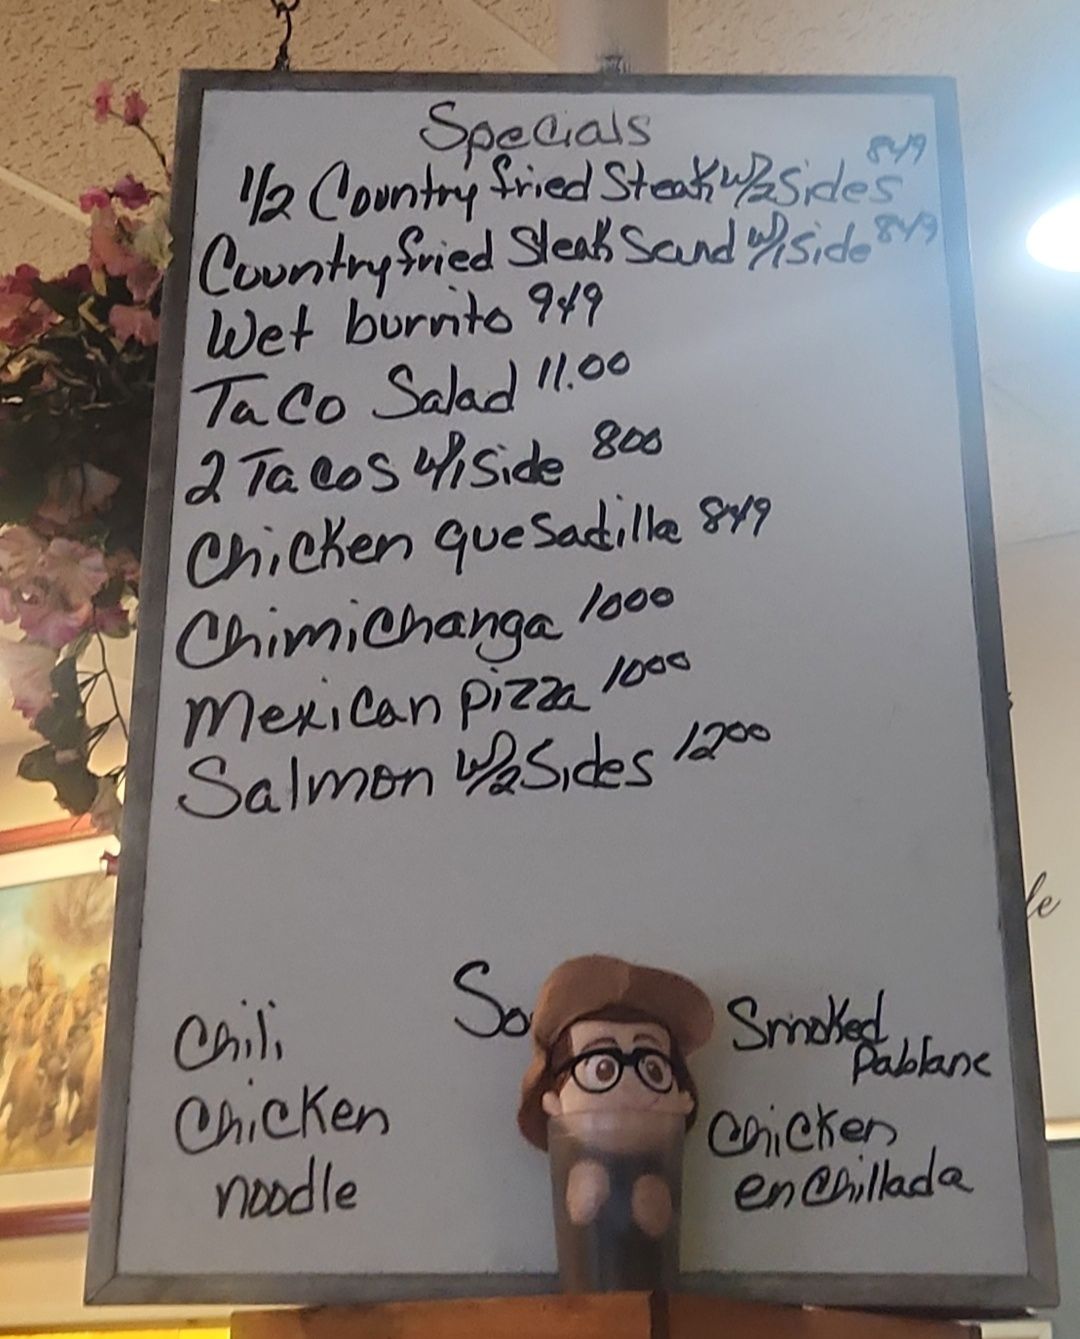 Specials
1/2 Country fried Steak w/2 Sides 849
Country fried Steak Sand w/1 side 849
Wet burrito 949
Taco Salad 11.00
2 Tacos w/1 Side 800
Chicken quesadilla 849
Chimichanga 1000
Mexican pizza 1000
Salmon w/2 Sides 1200
So
Chili
Chicken
noodle
Smoked
Pablanc
Chicken
enchillada